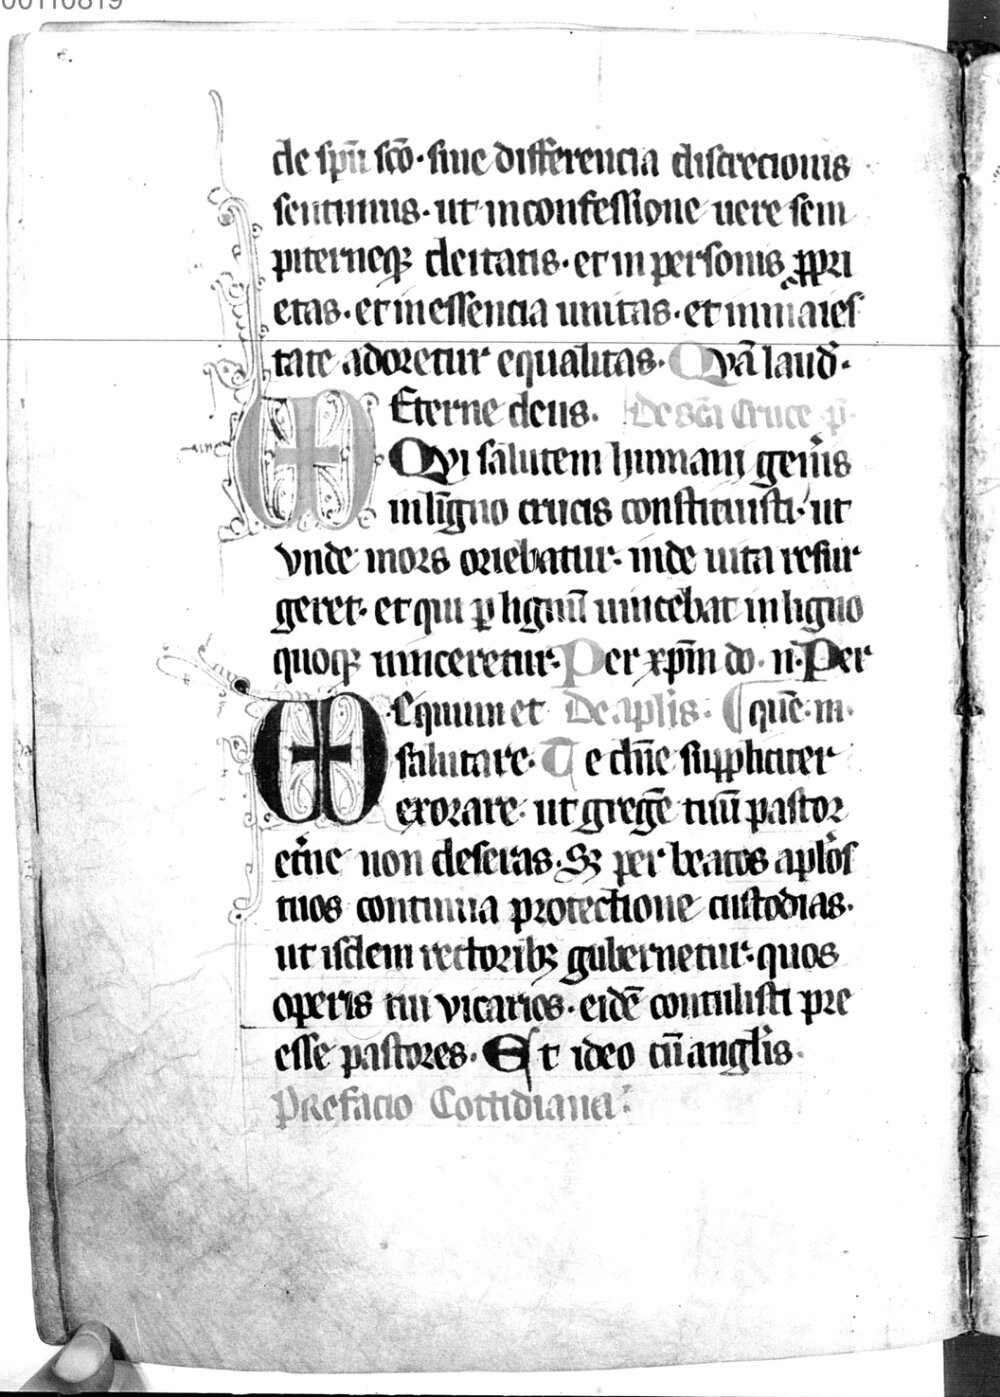 00110819
de spū sc̄o · sine differencia discrecionis
sentimus · ut inconfessione uere sem
piterneqꝫ deitatis · et in personis ꝓpri
etas · et in essencia unitas · et in maies
tate adoretur equalitas · Quā laud̄ ·
Eterne deus · De sc̄a Cruce p̄ ·
Qui salutem humani generis
in ligno crucis constituisti · ut
vnde mors oriebatur · inde uita resur
geret · et qui ꝑ lignū uincebat in ligno
quoqꝫ uinceretur · Per xp̄m do · n̄ · Per
Equum et De aplis · quē · m ·
salutare · Te dn̄e suppliciter
exorare · ut gregē tuū pastor
et̄ne non deseras · Sꝫ per beatos aplōs
tuos continua protectione custodias ·
ut isdem rectoribꝫ gubernetur · quos
operis tui vicarios · eidē contulisti pre
esse pastores · Et ideo cū anglis ·
Prefacio Cottidiana